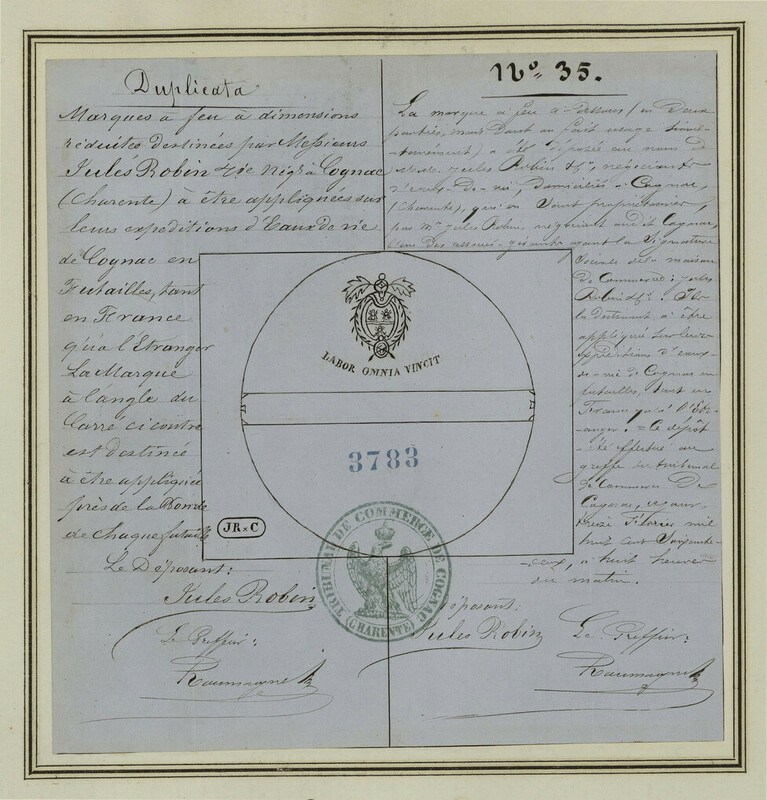 Duplicata
Marques à feu à dimensions
réduites destinées par Messieurs
Jules Robin & Cie Négts à Cognac
(Charente) à être appliquées sur
leurs expeditions d'Eaux de vie
de Cognac en
Futailles, tant
en France
qu'à l'Etranger
La Marque
à l'angle du
Carré ci contre
est destinée
à être appliquée
près de la Bonde
de chaque futaille
Le Déposant:
Jules Robin
Le Greffier:
No 35.
La marque à feu ci-dessus (en deux
parties, mais dont on fait usage simul-
tanément) a été déposée au nom de
Jules Robin & Cie, négociants
d'eaux-de-vie, domiciliés à Cognac,
(Charente), qui en sont propriétaires,
par Mr Jules Robin, négociant audit Cognac,
l'un des associés-gérants ayant la signature
sociale de la maison
de Commerce: Jules
Robin & Cie. Ils
la destinent à être
appliquée sur leurs
expéditions d'eaux-
de-vie de Cognac en
futailles, tant en
France qu'à l'Etr-
anger. = Ce dépôt
a été effectué au
greffe du tribunal
de Commerce de
Cognac, ce jour,
treize Février mil
huit cent soixante-
deux, à huit heures
du matin.
déposant
Jules Robin
Le Greffier:
LABOR OMNIA VINCIT
3783
JR&C
TRIBUNAL DE COMMERCE DE COGNAC
(CHARENTE)